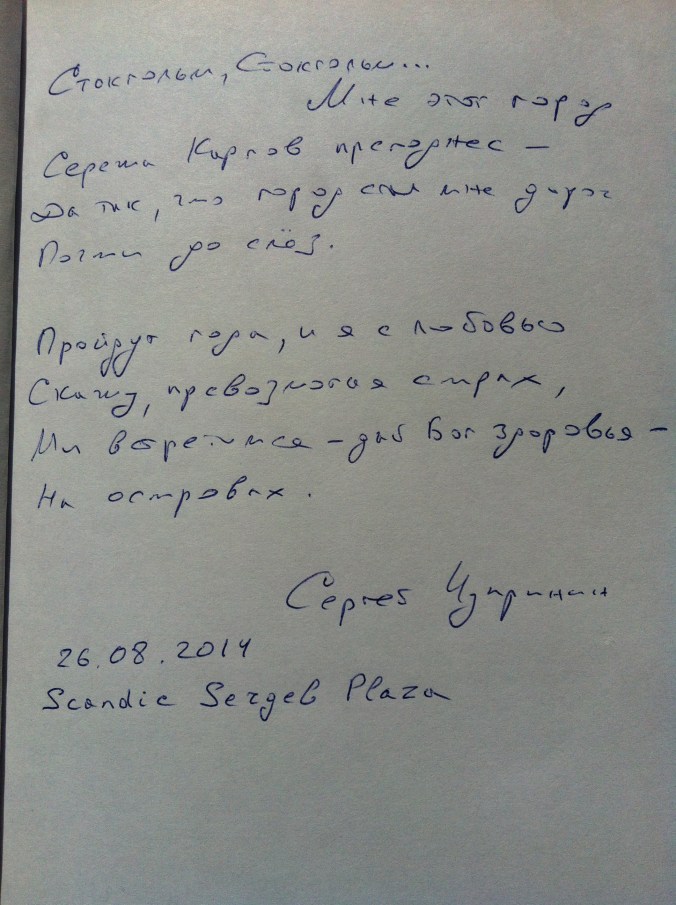 Стокгольм, Стокгольм...
Мне этот город
Сережа Карпов преподнес –
Да так, что город стал мне дорог
Почти до слёз.
Пройдут года, и я с любовью
Скажу, превозмогая страх,
Мы встретимся – дай Бог здоровья –
На островах.
Сергей Чупринин
26.08.2014
Scandic Sergel Plaza